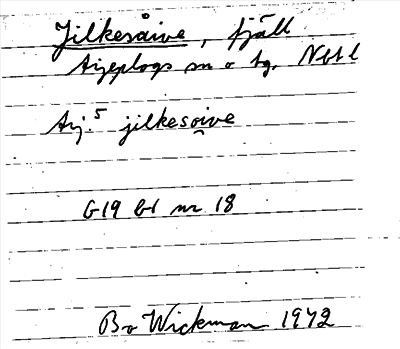 Jilkesåive, fjäll
Arjeplogs sn o tg. Nbt l
Arj.⁵ jilkesoi̮ve
G19 bl nr 18
Bo Wickman 1972